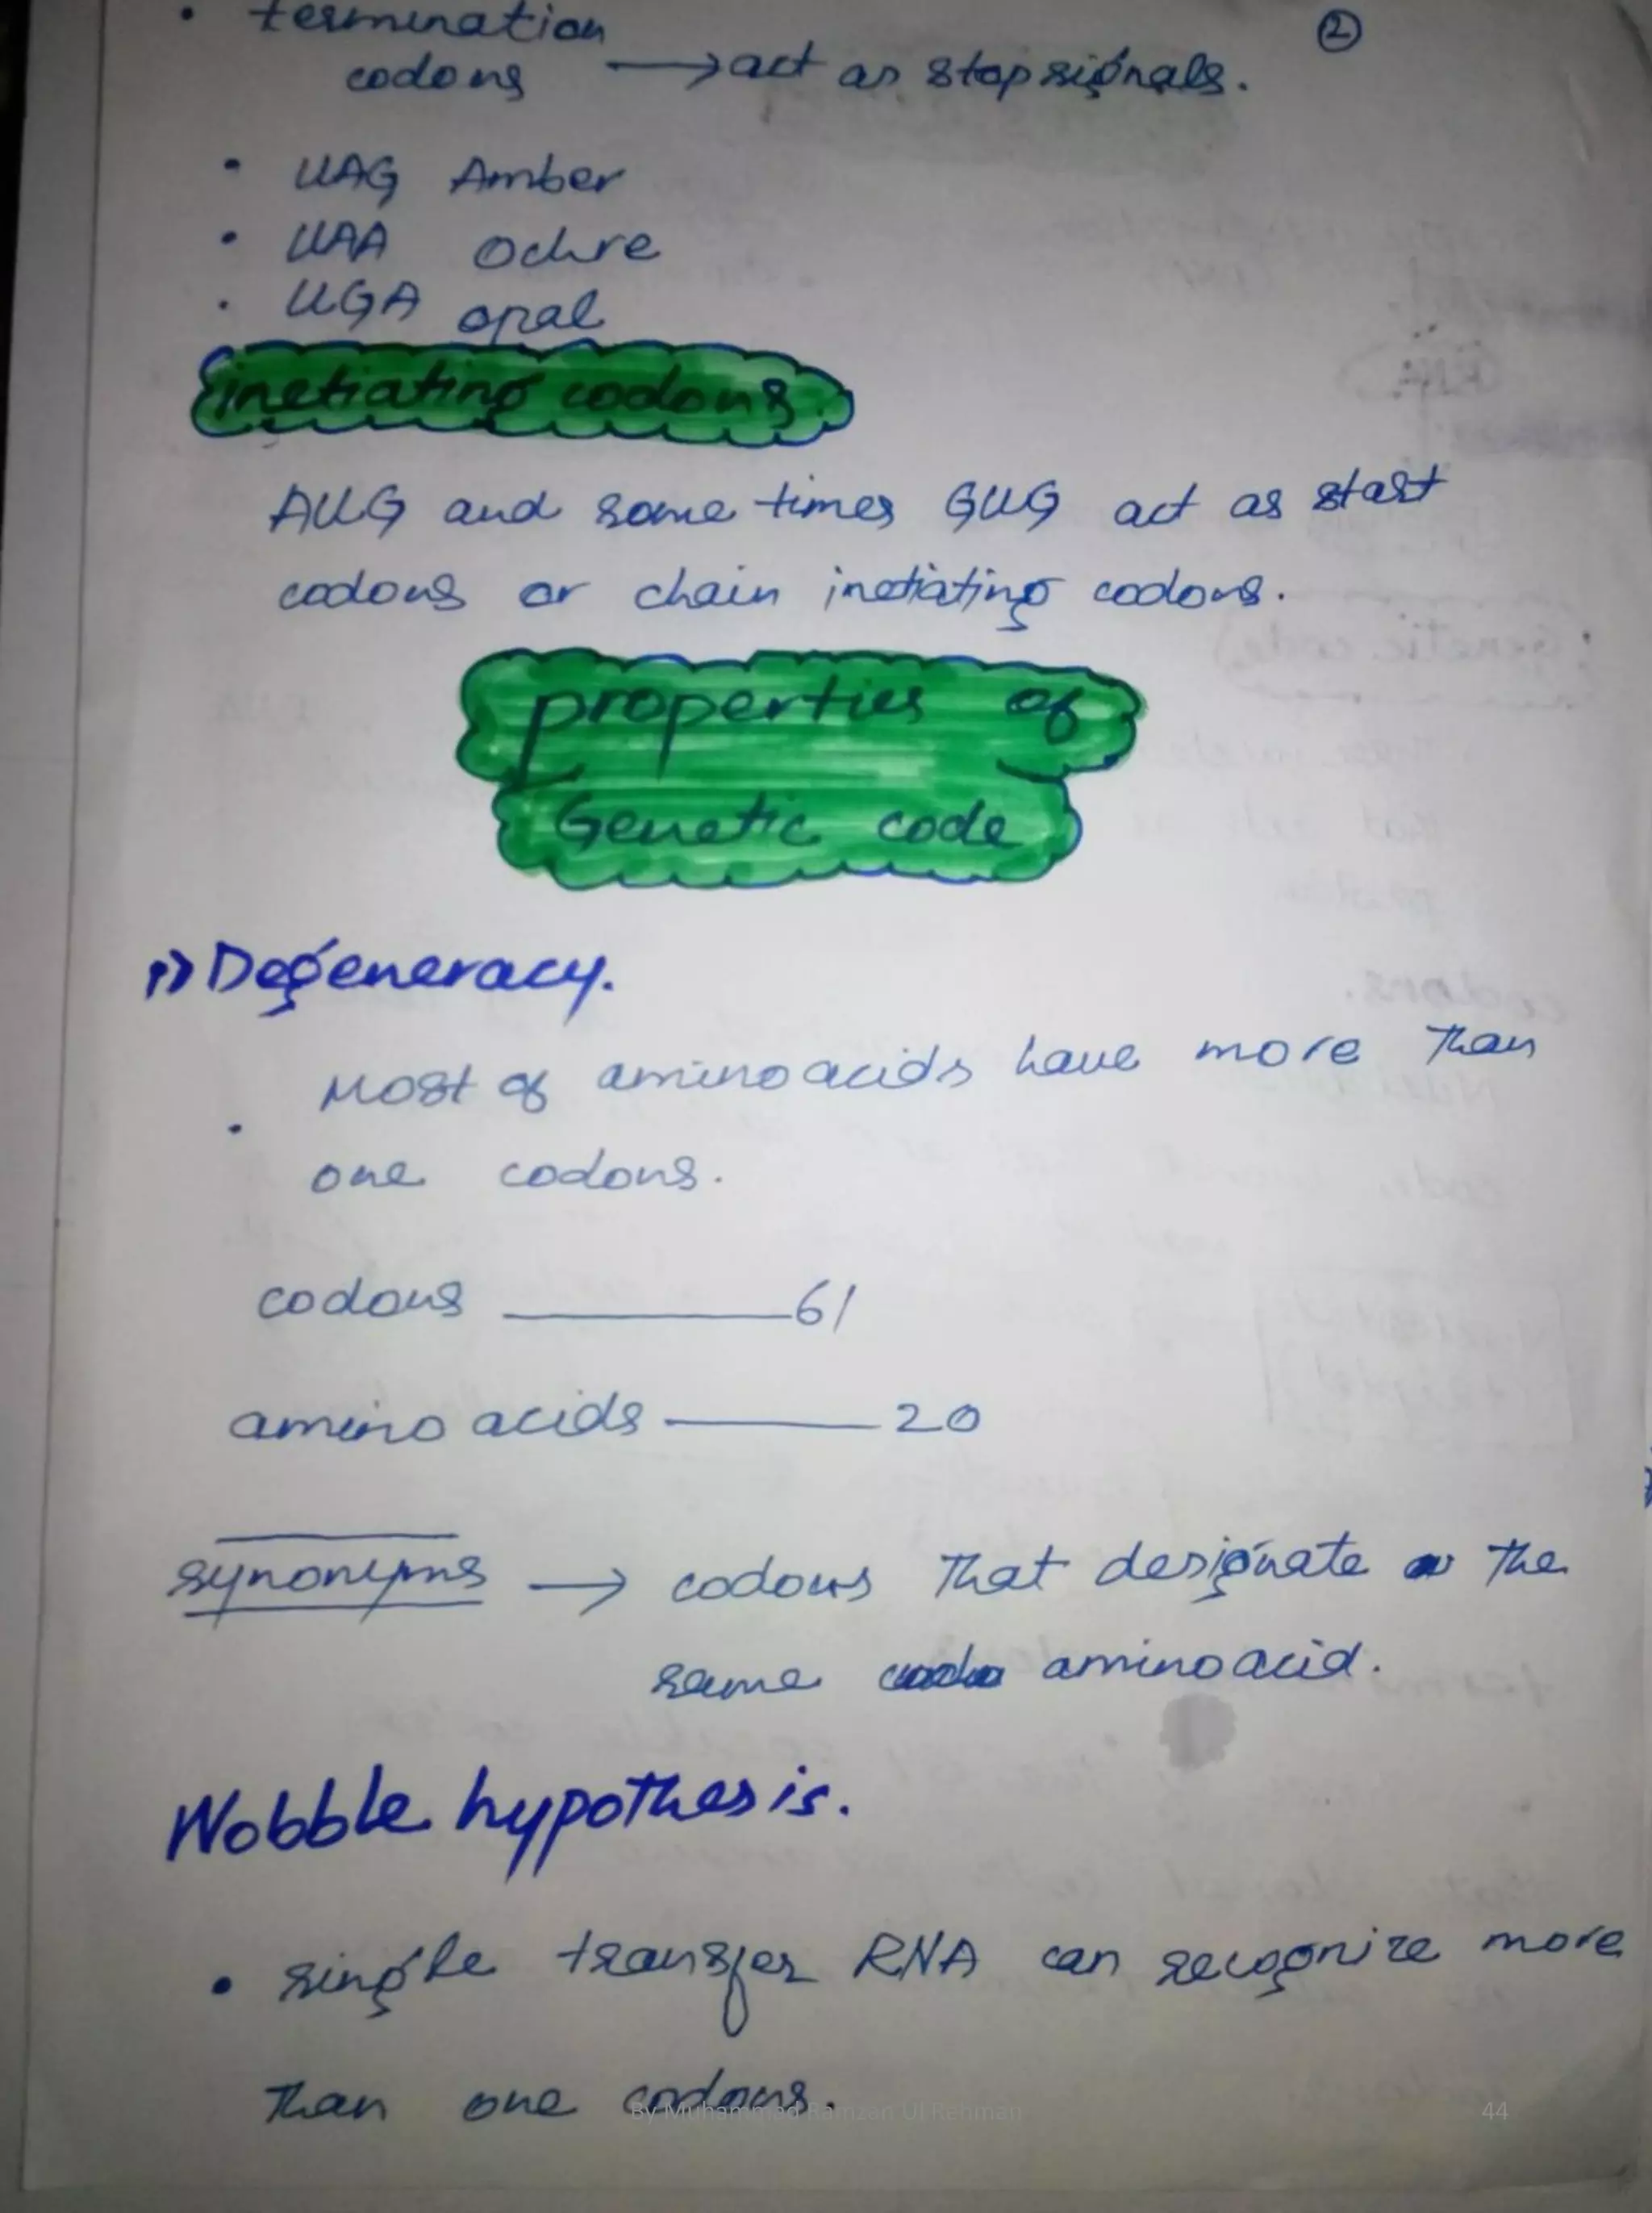 ②
• termination
codons → act as stop signals.
• UAG Amber
• UAA Ochre
• UGA opal
inetiating codons
AUG and some times GUG act as start
codons or chain inetiating codons.
properties of
Genetic code
1) Degeneracy.
• Most of amino acids have more than
one codons.
codons ______ 61
amino acids ______ 20
synonyms → codons that designate the
same amino acid.
Wobble hypothesis.
• single transfer RNA can recognize more
than one codons.
By Muhammad Ramzan Ul Rehman 44